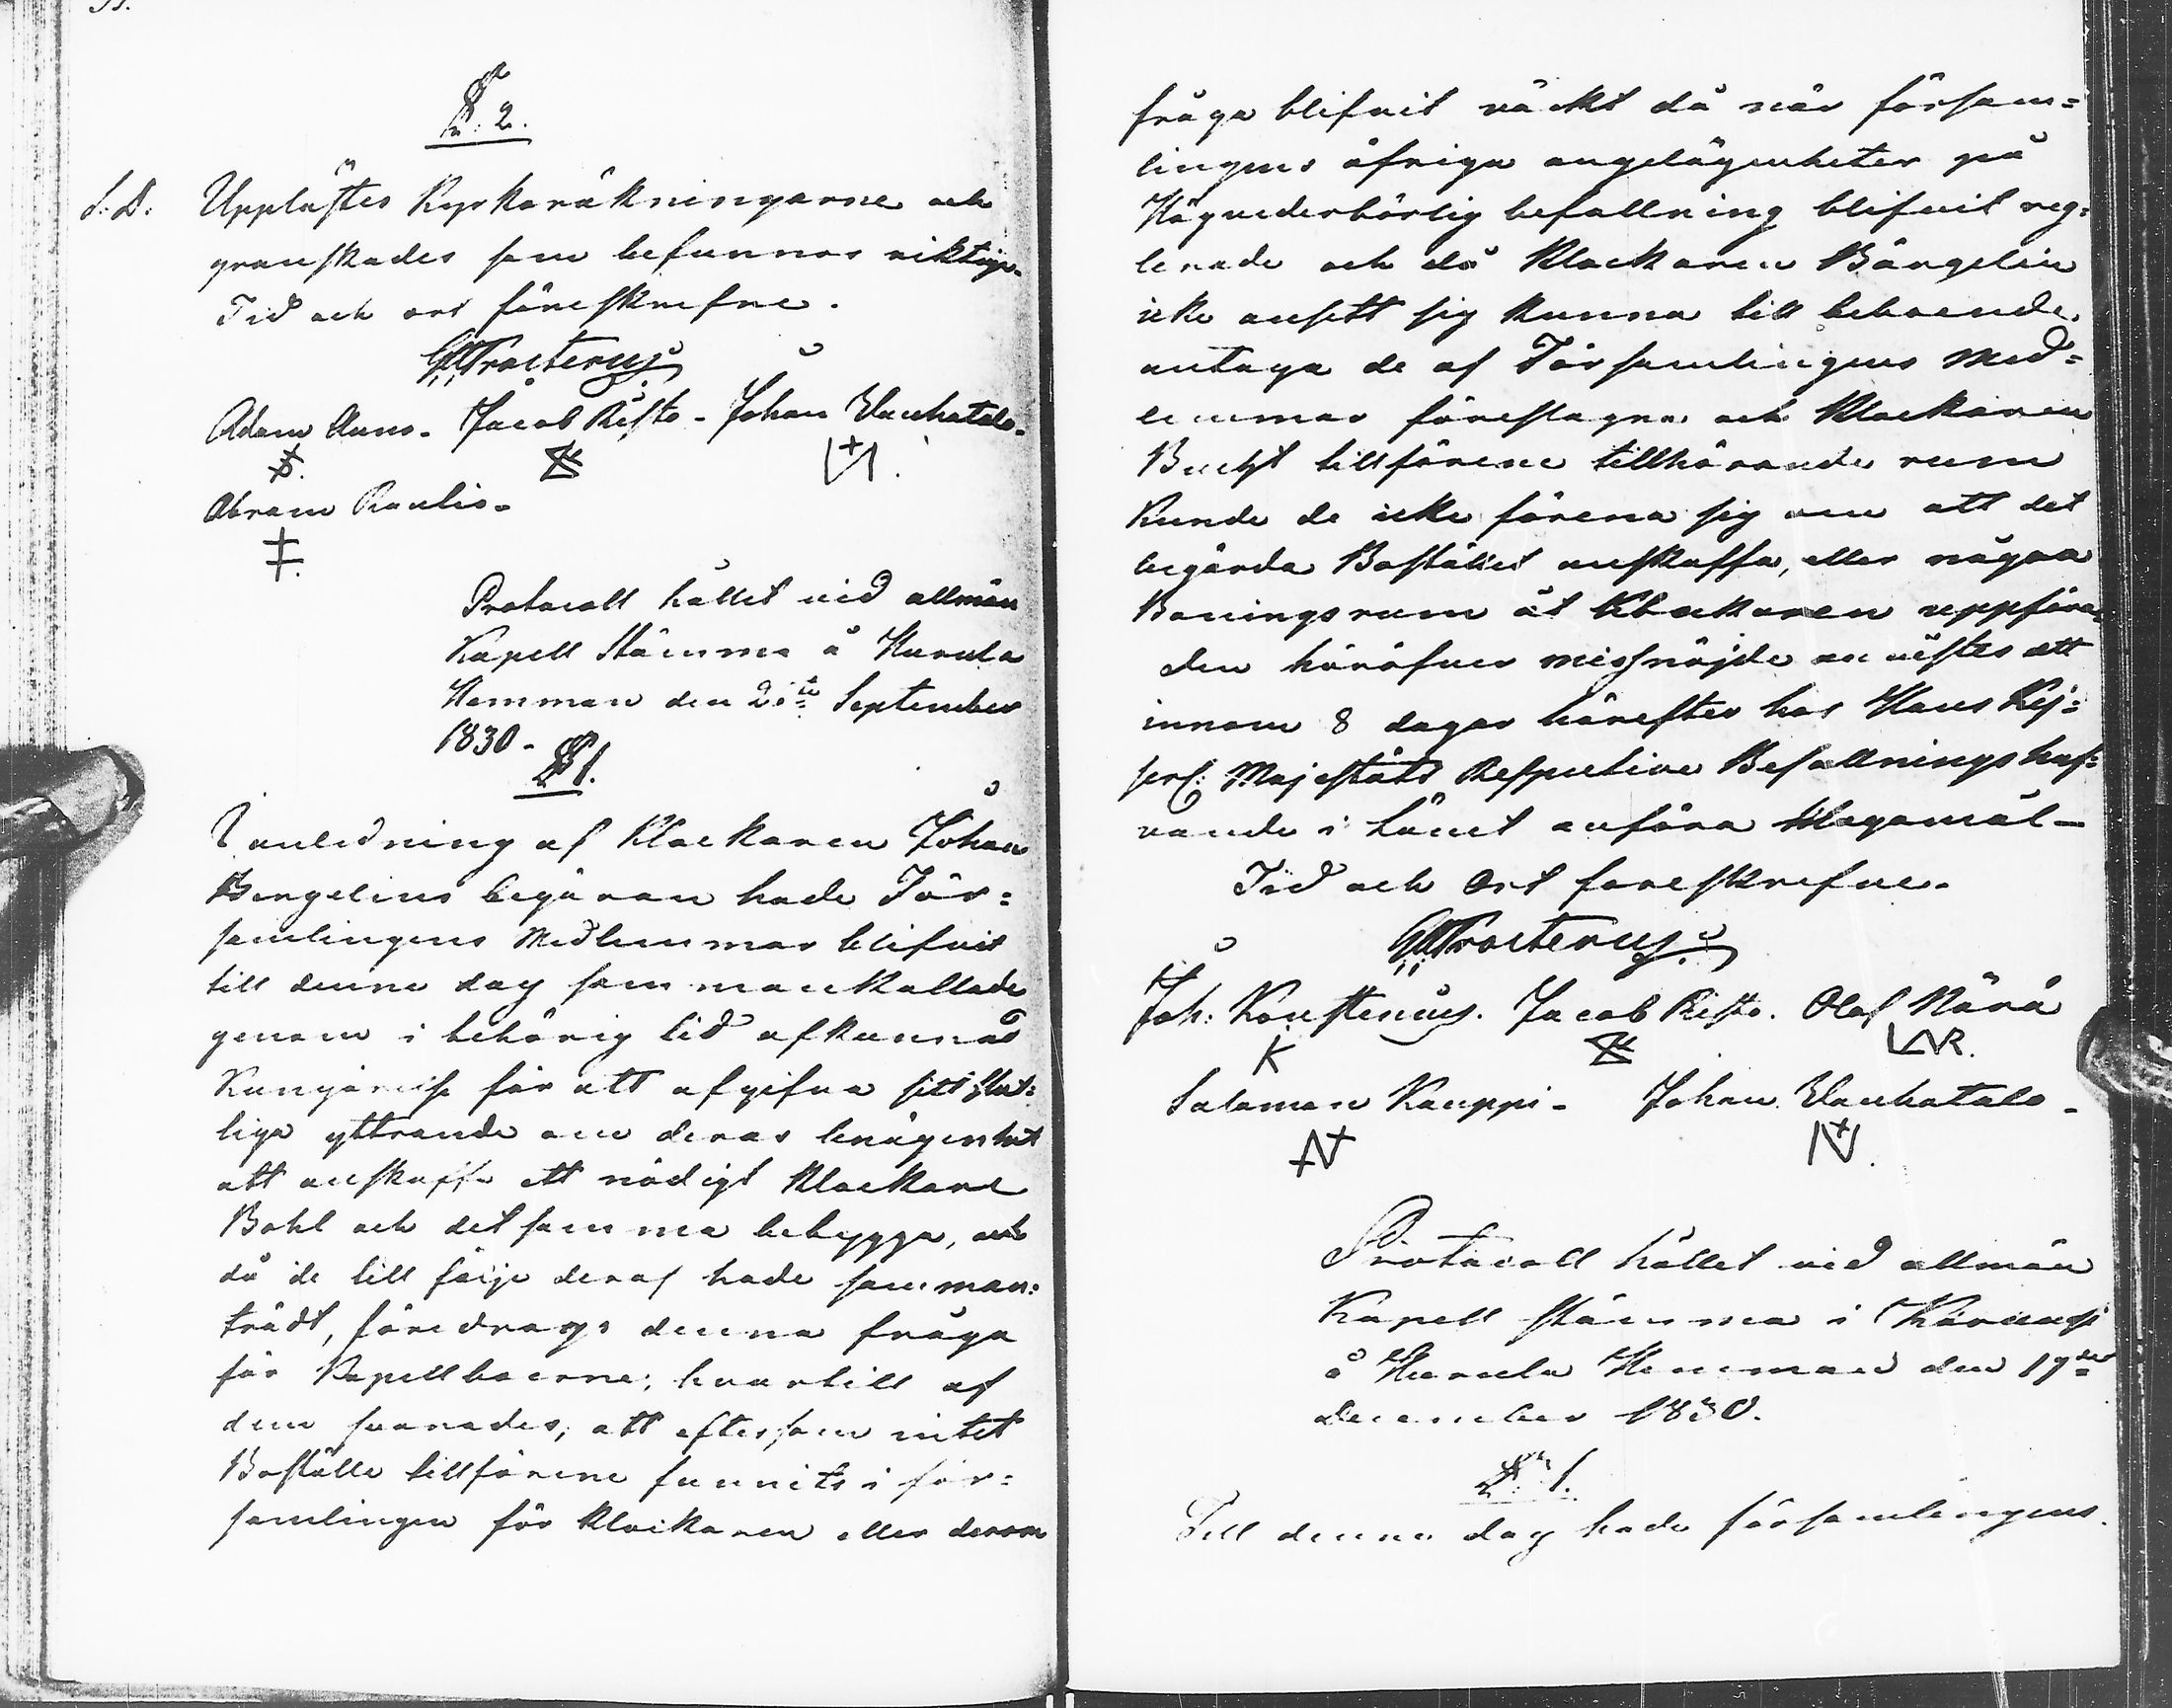 §. 2.
S. D. Upplästes Kyrkoräkningarne och
granskades som befunnos riktige.
Tid och ort föreskrefne.
G A Frosterus
Adam Auno. Jacob Risto. Johan Vanhatalo.
Abram Paulio.
Protocoll hållet vid allmän
Kapell Stämma å Hurula
Hemman den 2 September
1830.
§ 1.
I anledning af Klockaren Johan
Bergelins begäran hade För=
samlingens Medlemmar blifvit
till denne dag sammankallade
genom i behörig tid afkunnad
Kungörelse för att afgifva sitt slut=
liga yttrande om deras benägenhet
att anskaffa ett nödigt Klockare
Bohl och detsamma bebygga, och
då de till följe deraf hade samman=
trädt, föredrags denna fråga
för Kapellboerne; hvartill af
dem svarades, att eftersom intet
Boställe tillförene funnits i för=
samlingen för Klockaren eller derom
fråga blifvit väckt då när försam=
lingens öfriga angelägenheter på
Högvederbörlig befallning blifvit reg=
lerade och då Klockaren Bärgelin
icke ansett sig kunna till beboende
antaga de af Församlingens Med=
lemmar föreslagna och Klockaren
tillförene tillhörande rum
Kunde de icke förena sig om att det
begärda Bostället anskaffa, eller några
Boningsrum åt Klockaren uppföra
den häröfver missnöjde anvistes att
innom 8 dagar härefter hos Hans Kej=
serl: Majestäts Respective Befallningshaf=
vande i länet anföra klagomål
Tid och Ort foreskrefne.
G A Frosterus
Joh: Konstenius. Jacob Risto. Olof Närä
Salamon Kauppi. Johan Vanhatalo
Protocoll hållet vid allmän
Kapell stämma i Karungi
å Hurula Hemman den 19de
December 1830.
§ 1.
Till denne dag hade församlingens